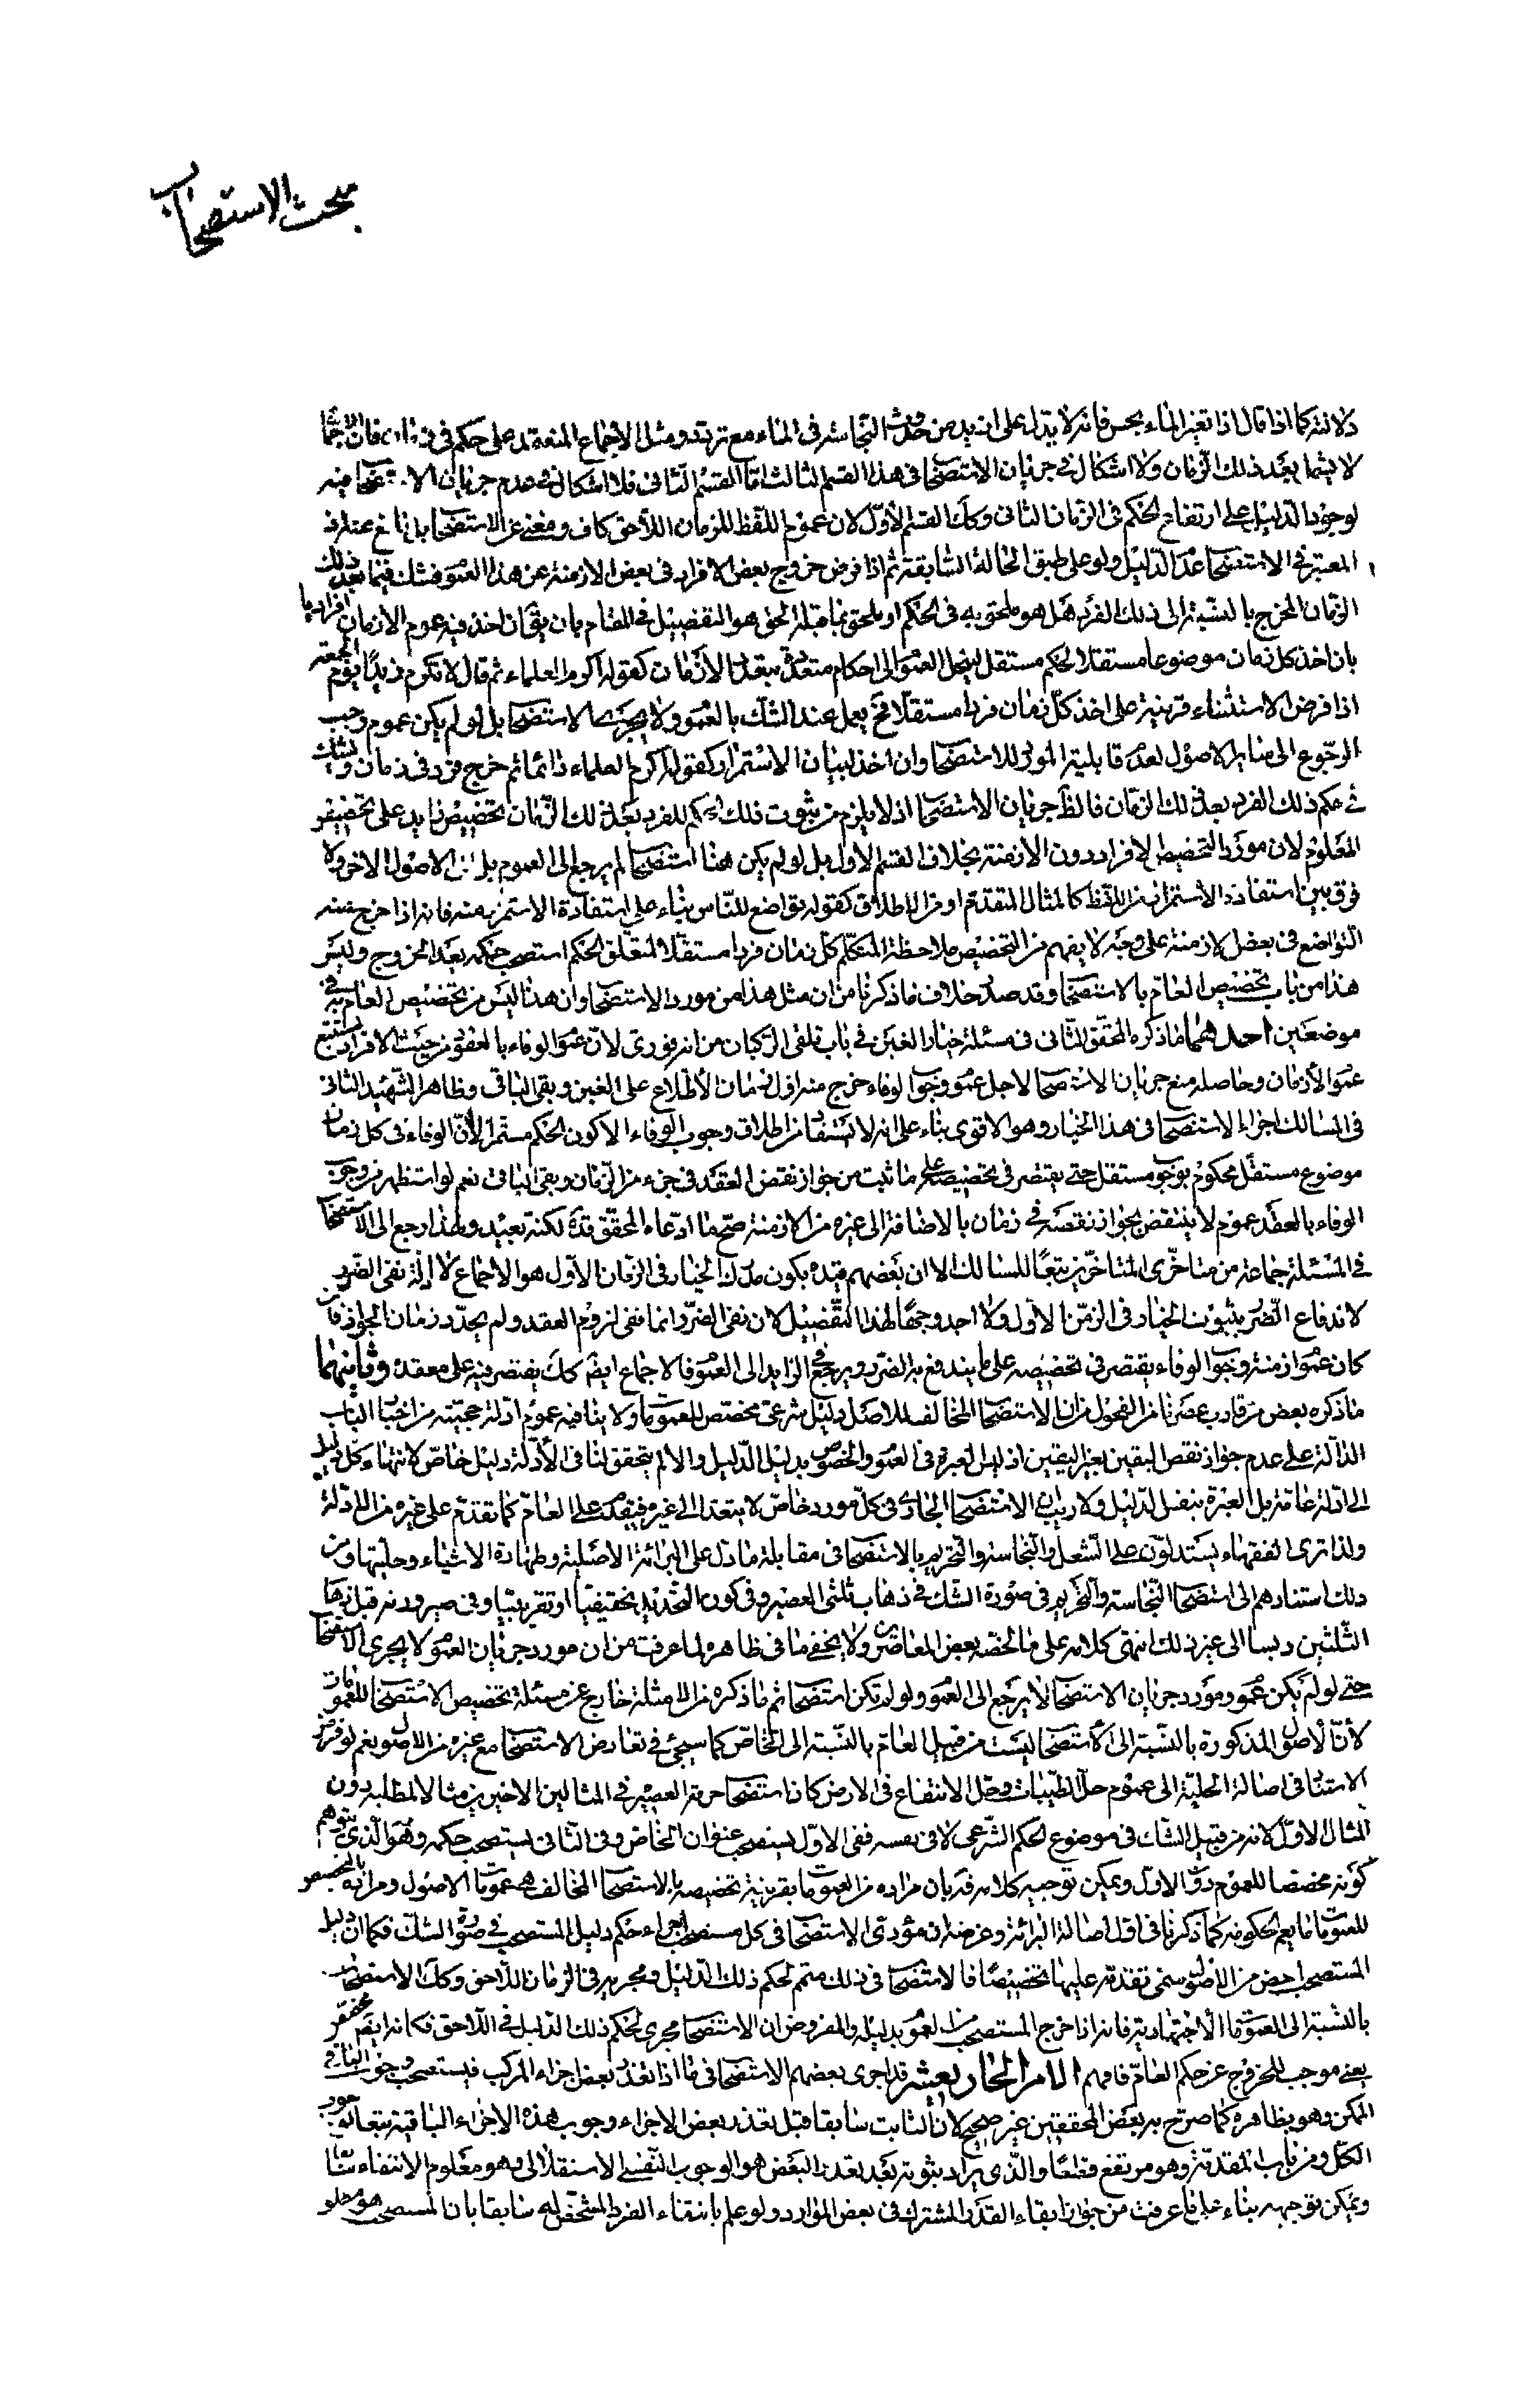 مبحث الاستصحاب
دلالته كما اذا قال اذا تغير الماء نجس فانه لا يدل على ازيد من حدوث النجاسة فى الماء مع تردد ومثل الاجماع المنعقد على حكم فى زمان فان الاجماع
لا يشمل ما بعد ذلك الزمان ولا اشكال فى جريان الاستصحاب فى هذا القسم الثالث واما القسم الثانى فلا اشكال فى عدم جريان الاستصحاب فيه
لوجود الدليل على ارتفاع الحكم فى الزمان الثانى وكك القسم الاول لان عموم اللفظ للزمان اللاحق كاف ومغنى عن الاستصحاب بل مانع عنه اذ
المعتبر فى الاستصحاب عدم الدليل ولو على طبق الحالة السابقة ثم اذا فرض خروج بعض الافراد فى بعض الازمنة عن هذا العموم فشك فيما بعد ذلك
الزمان المخرج بالنسبة الى ذلك الفرد هل هو ملحق به فى الحكم او ملحق بما قبله الحق هو التفصيل فى المقام بان يقال ان اخذ فيه عموم الازمان افراديا
بان اخذ كل زمان موضوعا مستقلا لحكم مستقل لينحل العموم الى احكام متعددة بتعدد الازمان كقوله اكرم العلماء ثم قال لا تكرم زيدا يوم الجمعة
اذا فرض الاستثناء قرينة على اخذ كل زمان فردا مستقلا فح يعمل عند الشك بالعموم ولا يجرى الاستصحاب بل لو لم يكن عموم وجب
الرجوع الى سائر الاصول لعدم قابلية المورد للاستصحاب وان اخذ لبيان الاستمرار كقوله اكرم العلماء دائما ثم خرج فرد فى زمان وشك
فى حكم ذلك الفرد بعد ذلك الزمان فالظ جريان الاستصحاب اذ لا يلزم من ثبوت ذلك الحكم للفرد بعد ذلك الزمان تخصيص زايد على التخصيص
المعلوم لان مورد التخصيص الافراد دون الازمنة بخلاف القسم الاول بل لو لم يكن هنا استصحاب لم يرجع الى العموم بل الى الاصول الاخر ولا
فرق بين استفادة الاستمرار من اللفظ كالمثال المتقدم او من الاطلاق كقوله تواضع للناس بناء على استفادة الاستمرار منه فانه اذا خرج منه
التواضع فى بعض الازمنة على وجه لا يفهم من التخصيص ملاحظة المتكلم كل زمان فردا مستقلا لمتعلق الحكم استصحب حكمه بعد الخروج وليس
هذا من باب تخصيص العام بالاستصحاب وقد صدر خلاف ما ذكرنا من ان مثل هذا من مورد الاستصحاب وان هذا ليس من تخصيص العام به فى
موضعين احدهما ما ذكره المحقق الثانى فى مسئلة خيار الغبن فى باب تلقى الركبان من انه فورى لان عموم الوفاء بالعقود من حيث الافراد يستتبع
عموم الازمان وحاصله منع جريان الاستصحاب لاجل عموم وجوب الوفاء خرج منه اول زمان الاطلاع على الغبن وبقى الباقى وظاهر الشهيد الثانى
فى المسالك اجراء الاستصحاب فى هذا الخيار وهو الاقوى بناء على انه لا يستفاد من اطلاق وجوب الوفاء الا كون الحكم مستمرا لا ان الوفاء فى كل زمان
موضوع مستقل محكوم بوجوب مستقل حتى يقتصر فى تخصيصه على ما ثبت من جواز نقض العقد فى جزء من الزمان وبقى الباقى نعم لو استظهر من وجوب
الوفاء بالعقد عموم لا ينتقض بجواز نقضه فى زمان بالاضافة الى غيره من الازمنة صح ما ادعاه المحقق قده لكنه بعيد ولهذا رجع الى الاستصحاب
فى المسئلة جماعة من متاخرى المتاخرين تبعا للمسالك الا ان بعضهم قيده بكون مدرك الخيار فى الزمان الاول هو الاجماع لا ادلة نفى الضرر
لاندفاع الضرر بثبوت الخيار فى الزمن الاول ولا اجد وجها لهذا التفصيل لان نفى الضرر انما نفى لزوم العقد ولم يحدد زمان الجواز فان
كان عموم ازمنة وجوب الوفاء يقتصر فى تخصيصه على ما يندفع به الضرر ويرجع فى الزايد الى العموم فالاجماع ايض كك يقتصر فيه على معقده وثانيهما
ما ذكره بعض من قارب عصرنا من الفحول من ان الاستصحاب المخالف للاصل دليل شرعى مخصص للعمومات ولا ينافيه عموم ادلة حجيته من اخبار الباب
الدالة على عدم جواز نقض اليقين بغير اليقين اذ ليس العبرة فى العموم والخصوص بدليل الدليل والا لم يتحقق لنا فى الادلة دليل خاص لانتهاء كل دليل
الى ادلة عامة بل العبرة بنفس الدليل ولا ريب ان الاستصحاب الجارى فى كل مورد خاص لا يتعداه الى غيره فيقدم على العام كما تقدم على غيره من الادلة
ولذا ترى الفقهاء يستدلون على الشغل والنجاسة والتحريم بالاستصحاب فى مقابلة ما دل على البرائة الاصلية وطهارة الاشياء وحليتها ومن
ذلك استنادهم الى استصحاب النجاسة والتحريم فى صورة الشك فى ذهاب ثلثى العصير وفى كون التحديد تحقيقيا او تقريبيا وفى صيرورته قبل ذهاب
الثلثين دبسا الى غير ذلك انتهى كلامه على ما لخصه بعض المعاصرين ولا يخفى ما فى ظاهره لما عرفت من ان مورد جريان العموم لا يجرى الاستصحاب
حتى لو لم يكن عموم ومورد جريان الاستصحاب لا يرجع الى العموم ولو لم يكن استصحاب ثم ما ذكره من الامثلة خارج عن مسئلة تخصيص الاستصحاب للعمومات
لان الاصول المذكورة بالنسبة الى الاستصحاب ليست من قبيل العام بالنسبة الى الخاص كما سيجئ فى تعارض الاستصحاب مع غيره من الاصول نعم لو فرض
الاستناد فى اصالة الحلية الى عموم حل الطيبات وحل الانتفاع فى الارض كان استصحاب حرمة العصير فى المثالين الاخيرين مثالا لمطلبه دون
المثال الاول لانه من قبيل الشك فى موضوع الحكم الشرعى لا فى نفسه ففى الاول يستصحب عنوان الخاص وفى الثانى يستصحب حكمه وهو الذى يتوهم
كونه مخصصا للعموم دون الاول ويمكن توجيه كلامه قده بان مراده من العمومات بقرينة تخصيصه بالاستصحاب المخالف هى عمومات الاصول ومراده بالتخصيص
للعمومات ما يعم الحكومة كما ذكرنا فى اول اصالة البرائة وغرضه ان مؤدى الاستصحاب فى كل مستصحب اجراء حكم دليل المستصحب فى صورة الشك فكما ان دليل
المستصحب اخص من الاصول سمى تقدمه عليها تخصيصا فالاستصحاب فى ذلك متمم لحكم ذلك الدليل ومجريه فى الزمان اللاحق وكك الاستصحاب
بالنسبة الى العمومات الاجتهادية فانه اذا خرج المستصحب من العموم بدليله والمفروض ان الاستصحاب مجرى لحكم ذلك الدليل فى اللاحق فكانه ايض مخصص
يعنى موجب للخروج عن حكم العام فافهم الامر الحاد يعشر قد اجرى بعضهم الاستصحاب فى ما اذا تعذر بعض اجزاء المركب فيستصحب وجوب الباقى
الممكن وهو بظاهره كما صرح به بعض المحققين غير صحيح لان الثابت سابقا قبل تعذر بعض الاجزاء وجوب هذه الاجزاء الباقية تبعا لوجوب
الكل ومن باب المقدمة وهو مرتفع قطعا والذى يراد ثبوته بعد تعذر البعض هو الوجوب النفسى الاستقلالى وهو معلوم الانتفاء سابقا
ويمكن توجيهه بناء على ما عرفت من جواز ابقاء القدر المشترك فى بعض الموارد ولو علم بانتفاء الفرد المشخص له سابقا بان المستصحب هو مطلو